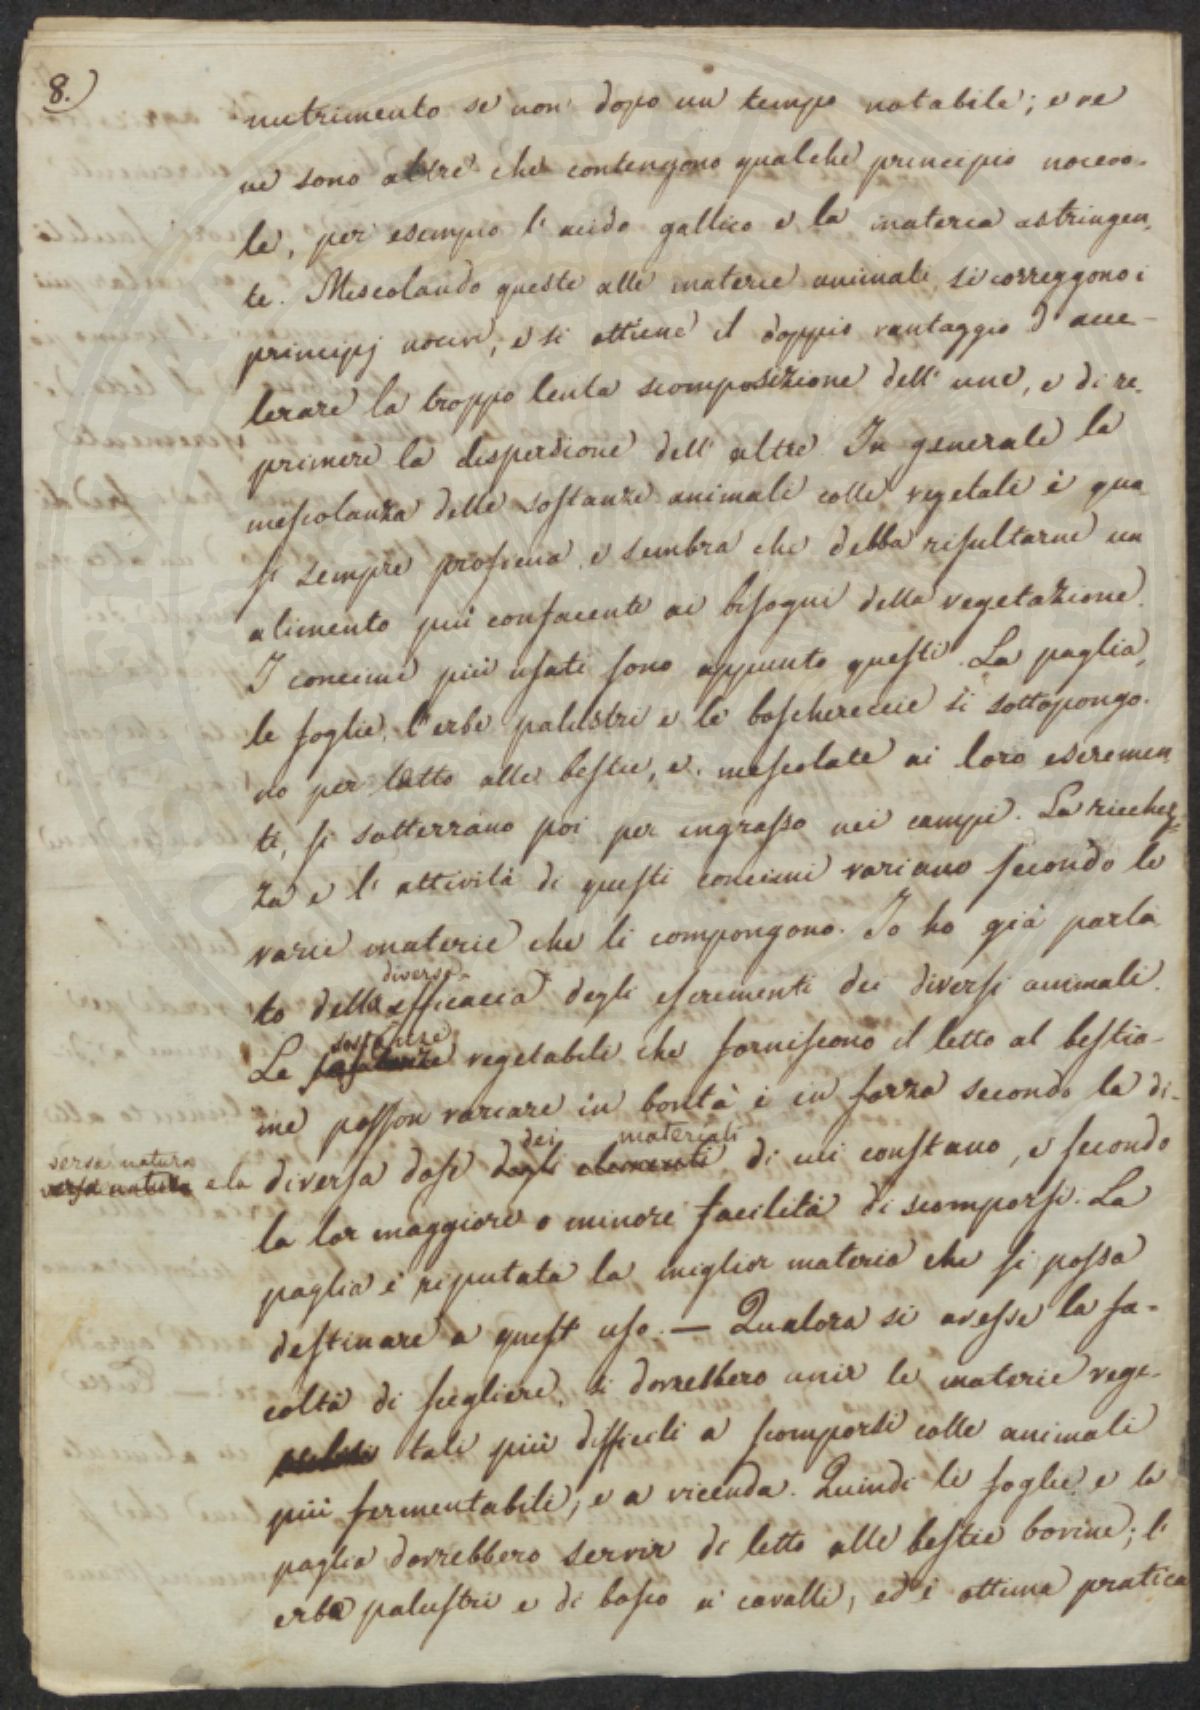 8.)
nutrimento se non dopo un tempo notabile; e ve
ne sono altre che contengono qualche principio nocevo-
le, per esempio l'acido gallico e la materia astringen,
te. Mescolando queste alle materie animali si correggono i
principj nocivi, e si ottiene il doppio vantaggio d'acce-
lerare la troppo lenta scomposizione dell'une, e di re-
primere la dispersione dell'altre. In generale la
mescolanza delle sostanze animali colle vegetali è qua
si sempre proficua e sembra che debba risultarne un
alimento più confacente ai bisogni della vegetazione.
I concimi più usati sono appunto questi. La paglia,
le foglie, l'erbe palustri e le boschereccie si sottopongo-
no per letto alle bestie, e mescolate ai loro escremen
ti, si sotterrano poi per ingrasso nei campi. La ricchez=
za e l'attività di questi concimi variano secondo le
varie materie che li compongono. Io ho già parla
diversa
to della efficacia degli escrementi dei diversi animali.
sostanze
Le sostanze vegetabili che forniscono il letto al bestia-
me posson variare in bontà e in forza secondo la di-
dei materiali
versa natura
versa natura e la diversa dose degli elementi di cui constano, e secondo
la lor maggiore o minore facilità di scomporsi. La
paglia è riputata la miglior materia che si possa
destinare a quest'uso. — Qualora si avesse la fa-
coltà di scegliere, si dovrebbero unir le materie vege-
tali più difficili a scomporsi colle animali
più fermentabili, e a vicenda. Quindi le foglie e la
paglia dovrebbero servir di letto alle bestie bovine; l'
erbe palustri e di bosco a' cavalli, ed è ottima pratica